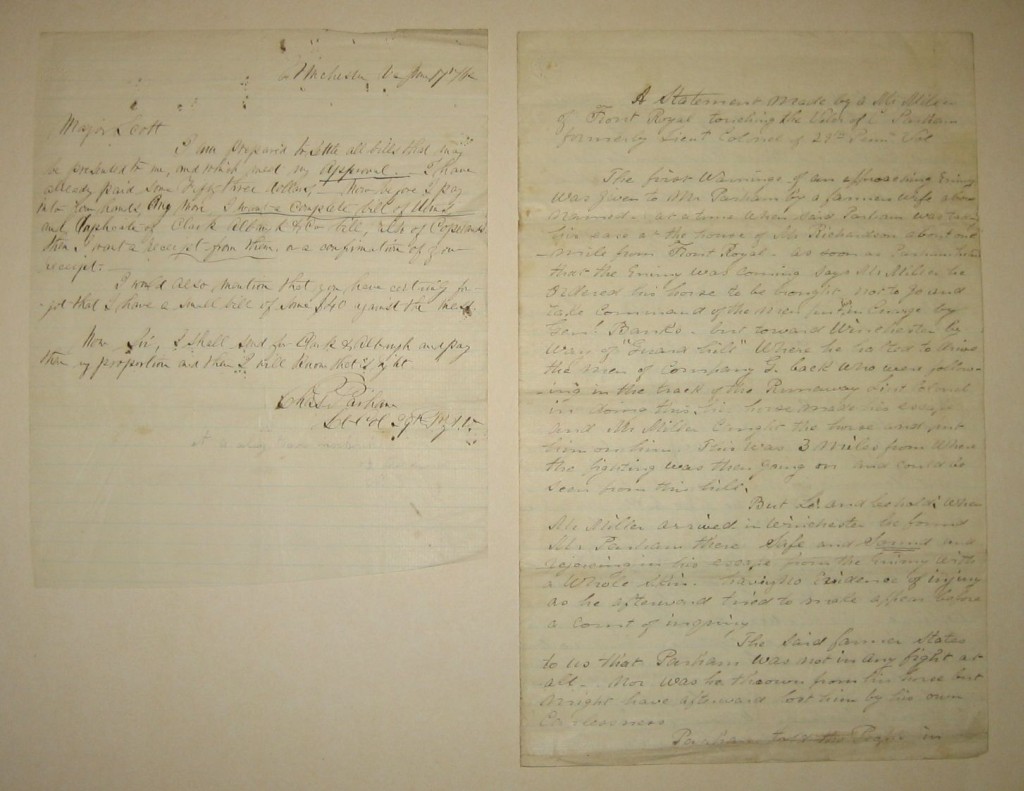 Winchester Va Jan 17th
Major Scott
I am prepared to settle all bills that may
be presented to me, and which meet my approval. I have
already paid some fifty three dollars. Now before I pay
into your hands, any more I want a complete bill of
and, duplicate of Clark
then I want a receipt from them, or a confirmation of your
receipt.
I would also, mention that you have certainly for-
-got that I have a small bill of some $40 against the mess
Now Sir, I shall send for Clark & and pay
them my proportion and then I will know that it's right
Chas Parham
Lt Col 29th
A Statement made by a Mr Milder
of Front Royal touching the C Parham
formerly Lieut Colonel of 29th Penn Vol
The first Warning of an approaching Enemy
Was given to Mr Parham by a farmers Wife above
at a time When said Parham was
his ease at the house of Mr Richardson about one
mile from Front Royal - as soon as
that the Enemy was Coming says Mr Milder he
Ordered his horse to be brought not to go and
take Command of the Men in his Charge by
Genl Banks - but toward Winchester by
Way of "Guard hill" Where he halted to drive
the men of Company G. back Who were follow-
-ing in the track of the Runaway Lieut Colonel
in doing this his horse made his escape
and Mr Milder Caught the horse and put
him on him. This was 3 Miles from Where
the fighting was then going on and could be
seen from this hill.
But Lo and behold When
Mr Milder arrived in Winchester he found
Mr Parham there Safe and Sound and
rejoicing in his escape from the Enemy with
a Whole Skin. having no Evidence of injury
as he afterward tried to make appear before
a Court of inquiry
The said farmer States
to us that Parham was not in any fight at
all - Nor was he thrown from his horse but
might have afterward lost him by his own
Carelessness
Parham told the People in